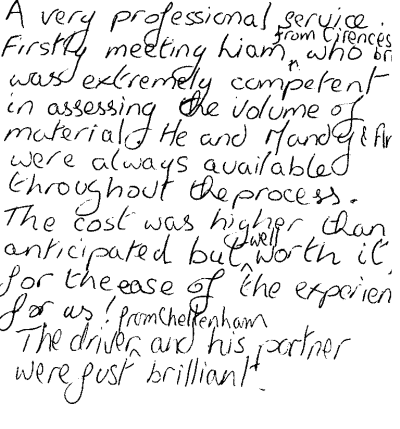 A very professional service.
Firstly meeting Liam, from Cirences who
was extremely competent
in assessing the volume of
material. He and Mandy &
were always available
throughout the process.
The cost was higher than
anticipated but well worth it,
for the ease of the experien
for us!
The driver from Cheltenham and his partner
were just brilliant!